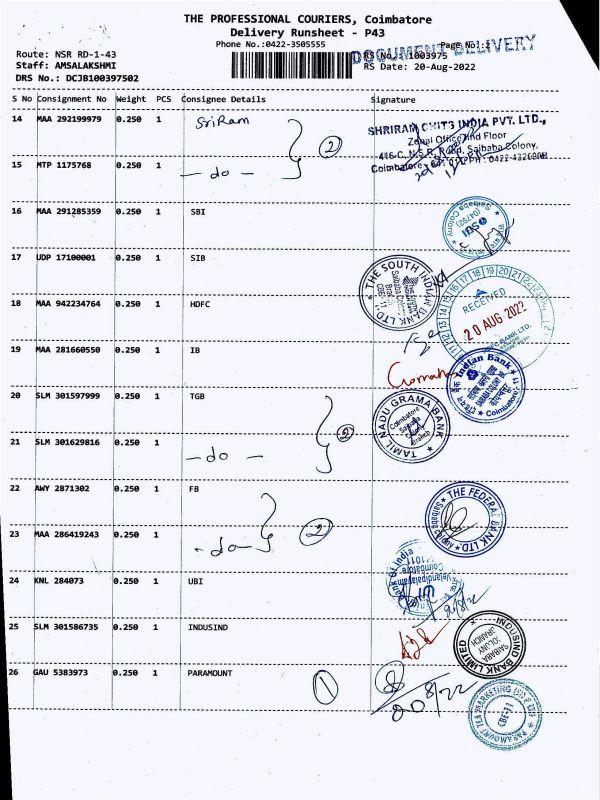 THE PROFESSIONAL COURIERS, Coimbatore
Delivery Runsheet - P43
Phone No.:0422-3505555
Page No.:2
DOCUMENT DELIVERY
Route: NSR RD-1-43
RS No.: 1003975
Staff: AMSALAKSHMI
RS Date: 20-Aug-2022
DRS No.: DCJB100397502
S No Consignment No Weight PCS Consignee Details Signature
14 MAA 292199979 0.250 1 SriRam
SHRIRAM CHITS INDIA PVT. LTD.,
Zonal Office IInd Floor
416-C, N.S.R. Road, Saibaba Colony,
2
15 MTP 1175768 0.250 1 - do -
16 MAA 291285359 0.250 1 SBI
Saibaba Colony
(04792)
17 UDP 17100001 0.250 1 SIB
THE SOUTH INDIAN BANK LTD
CBE-11
18 MAA 942234764 0.250 1 HDFC
RECEIVED
20 AUG 2022
HDFC BANK LTD.
19 MAA 281660550 0.250 1 IB
Indian Bank
Coimbatore
20 SLM 301597999 0.250 1 TGB
TAMIL NADU GRAMA BANK
Coimbatore
Saibaba
Colony
Branch
2
21 SLM 301629816 0.250 1 - do -
22 AWY 2871302 0.250 1 FB
THE FEDERAL BANK LTD
2
23 MAA 286419243 0.250 1 - do -
24 KNL 284073 0.250 1 UBI
Velandipalayam
Coimbatore
25 SLM 301586735 0.250 1 INDUSIND
INDUSIND BANK LIMITED
SAIBABA
COLONY
BRANCH
26 GAU 5383973 0.250 1 PARAMOUNT
1
20/8/22
PARAMOUNT TEA MARKETING
CBE-11